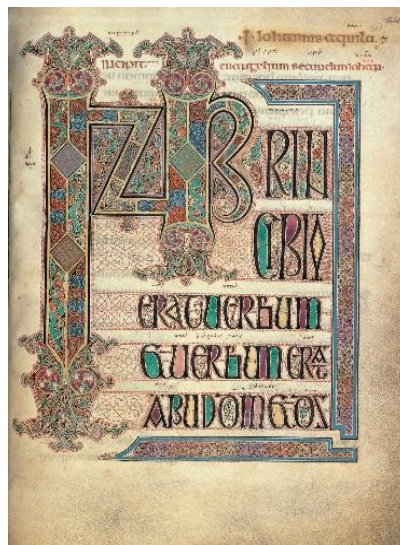 Iohannis aquila
incipit euangelium secundum iohan
INPRIN
CIPIO
ERAT UERBUM
ET UERBUM ERAT
APUD DM ET DS